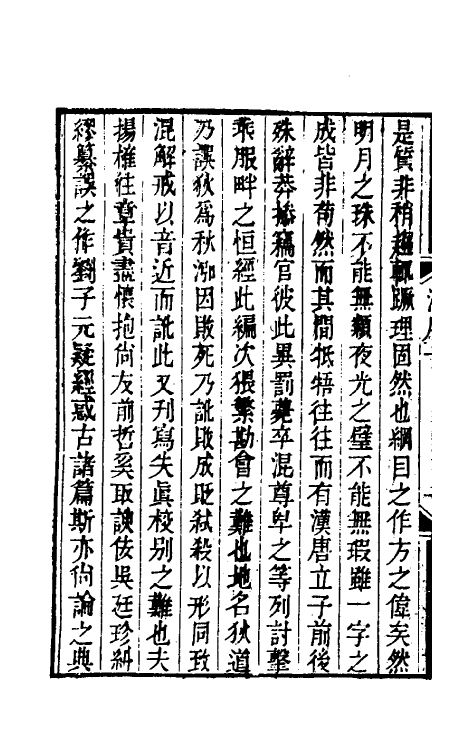 是質非稍趨輒蹶理固然也綱目之作方之偉矣然
明月之珠不能無纇夜光之璧不能無瑕雖一字之
成皆非苟然而其間牴牾往往而有漢唐立子前後
殊辭莽操竊官彼此異罰薨卒混尊卑之等列討擊
乖服畔之恒經此編次猥繁勘會之難也地名狄道
乃誤狄爲秋泖因敗死乃訛敗成旣弑殺以形同致
混解戒以音近而訛此又刋寫失眞校别之難也夫
揚榷往章貴盡懷抱尙友前哲奚取諛佞吳廷珍糾
繆纂誤之作劉子元疑經惑古諸篇斯亦尙論之典